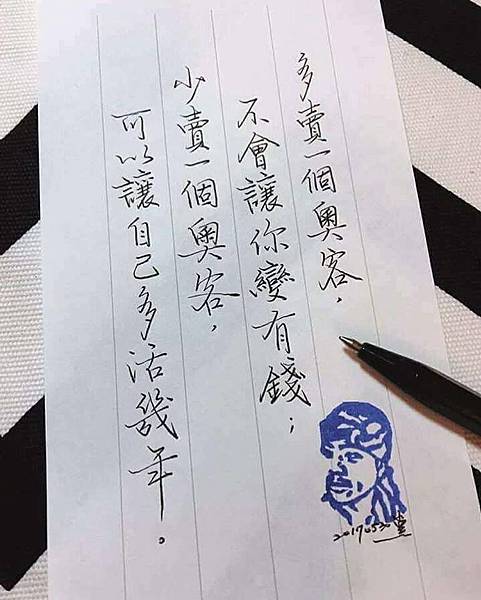 多賣一個奧客，
不會讓你變有錢；
少賣一個奧客，
可以讓自己多活幾年。
20170530